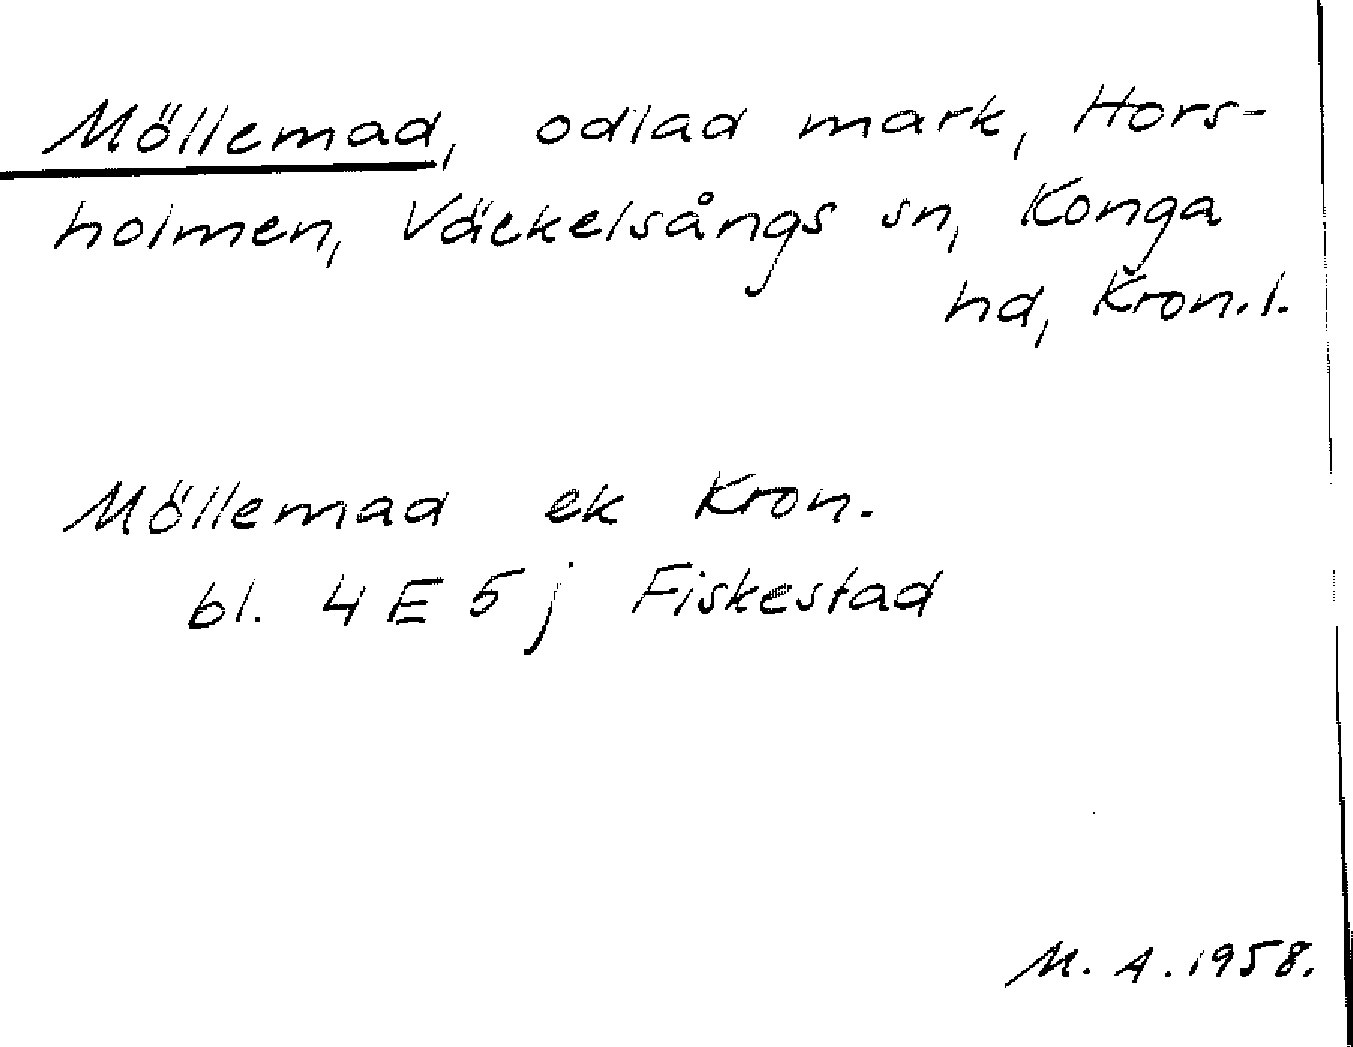 Möllemad, odlad mark, Hors-
holmen, Väckelsångs sn, Konga
hd, Kron.l.
Möllemad ek Kron.
bl. 4 E 5 j Fiskestad
M. A. 1958.